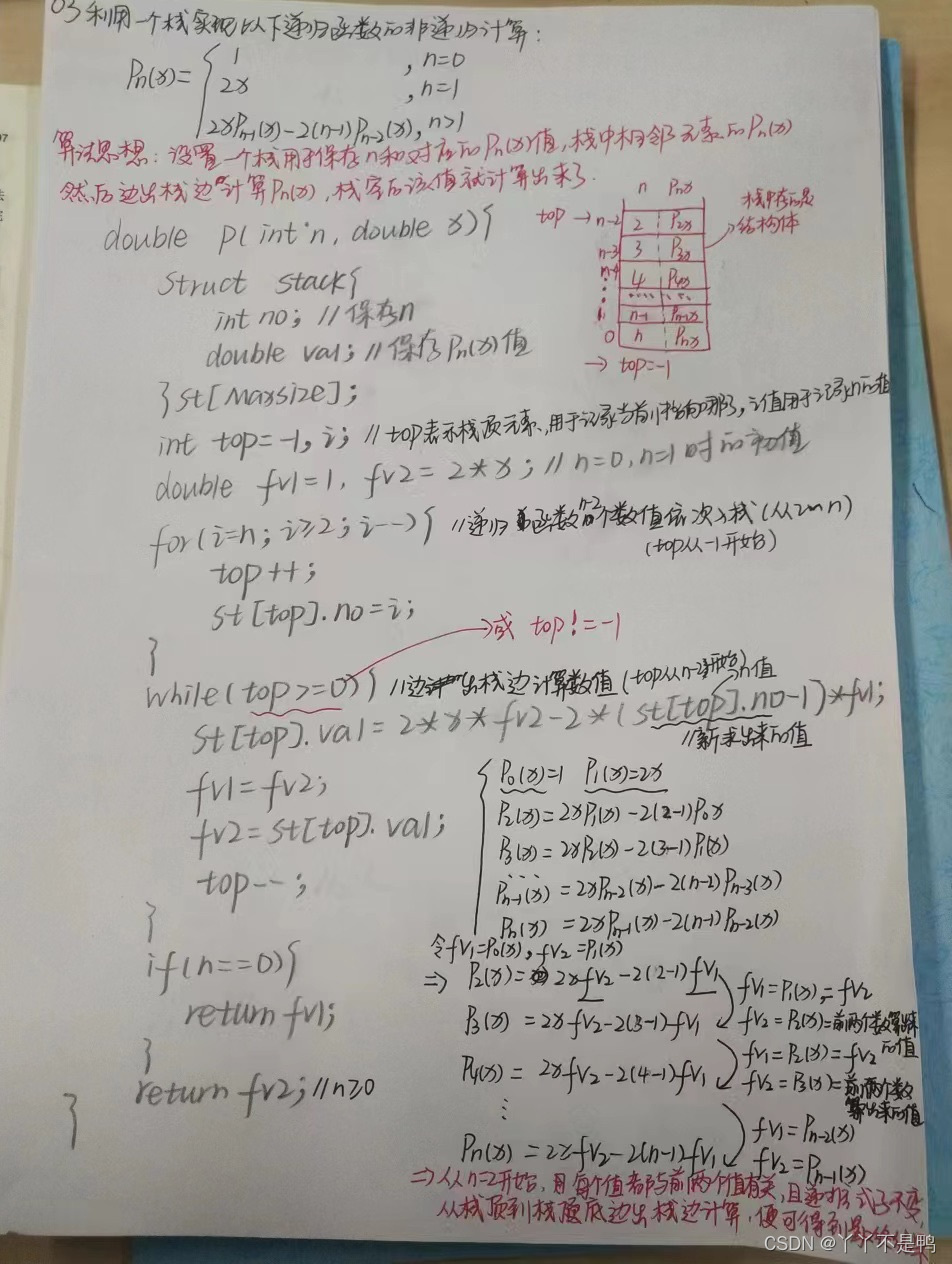 03 利用一个栈实现以下递归函数的非递归计算:
Pn(x)= { 1 , n=0
2x , n=1
2xPn-1(x)-2(n-1)Pn-2(x), n>1
算法思想: 设置一个栈用于保存n和对应的Pn(x)值, 栈中相邻元素的Pn(x)
然后边出栈边计算Pn(x), 栈空后该值就计算出来了.
n Pnx
top → n-2 2 P2x
n-3 3 P3x
n-4 4 P4x
1 n-1 Pn-1x
0 n Pnx
→ top=-1
栈中存的是
结构体
double p(int n, double x){
struct stack{
int no; //保存n
double val; //保存Pn(x)值
}st[Maxsize];
int top=-1, i; //top表示栈顶元素, 用于记录当前指向哪了, i值用于记录n的值
double fv1=1, fv2=2*x; //n=0,n=1时的初值
for(i=n; i≥2; i--){ //递归函数n-2个数值依次入栈(从2~n)
(top从-1开始)
top++;
st[top].no=i;
}
→或 top!=-1
while(top>=0){ //边出栈边计算数值(top从n-2开始) n值
st[top].val=2*x*fv2-2*(st[top].no-1)*fv1;
//新求出来的值
fv1=fv2;
fv2=st[top].val;
top--;
}
if(n==0){
return fv1;
}
return fv2; //n≥0
}
P0(x)=1 P1(x)=2x
P2(x)=2xP1(x)-2(2-1)P0x
P3(x)=2xP2(x)-2(3-1)P1(x)
...
Pn-1(x)=2xPn-2(x)-2(n-2)Pn-3(x)
Pn(x)=2xPn-1(x)-2(n-1)Pn-2(x)
令fv1=P0(x), fv2=P1(x)
⇒ P2(x)=2xfv2-2(2-1)fv1 fv1=P1(x)=fv2
P3(x)=2xfv2-2(3-1)fv1 fv2=P2(x)=前两个数算出来的值
fv1=P2(x)=fv2
P4(x)=2xfv2-2(4-1)fv1 fv2=P3(x)=前两个数
算出来的值
⋮
fv1=Pn-2(x)
Pn(x)=2xfv2-2(n-1)fv1 fv2=Pn-1(x)
⇒从n=2开始, 每个值都与前两个值有关, 且递推式子不变,
从栈顶到栈底边出栈边计算, 便可得到
CSDN @丫丫不是鸭